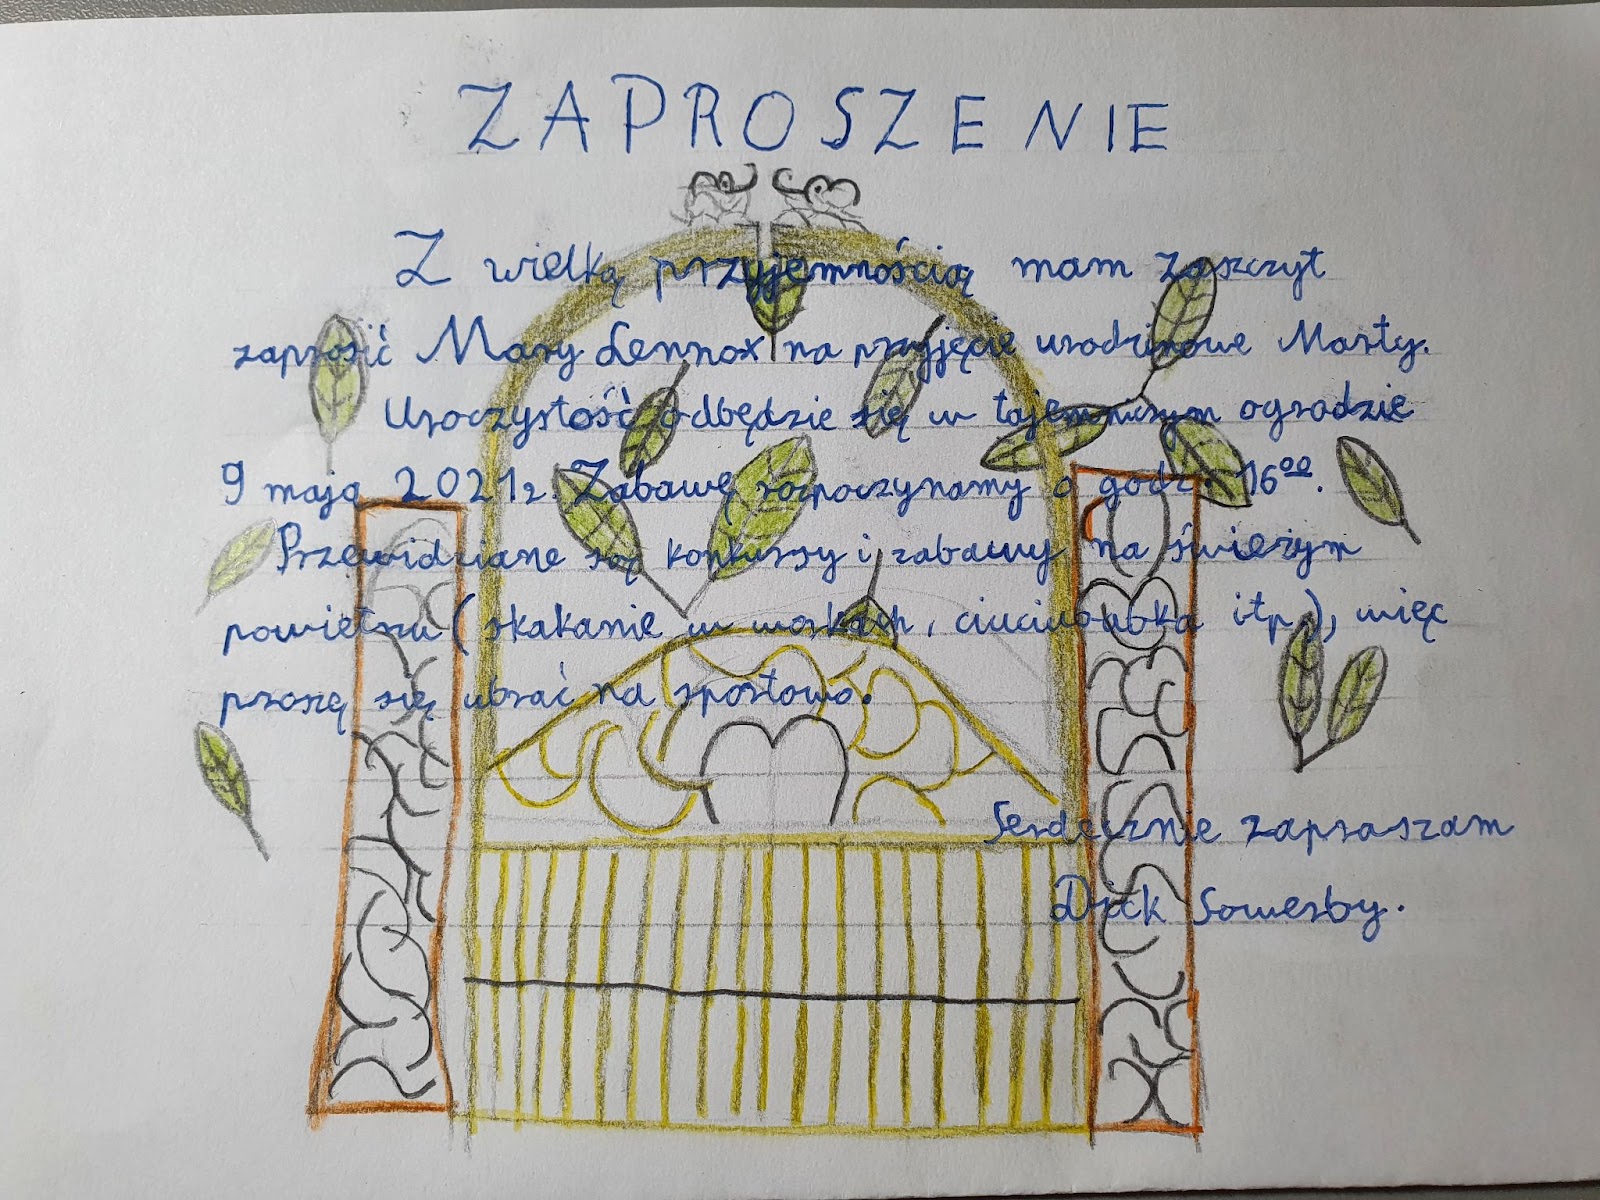 ZAPROSZENIE
Z wielką przyjemnością mam zaszczyt
zaprosić Mary Lennox na przyjęcie urodzinowe Marty.
Uroczystość odbędzie się w tajemniczym ogrodzie
9 maja 2021r. Zabawę rozpoczynamy o godz. 16⁰⁰.
Przewidziane są konkursy i zabawy na świeżym
powietrzu (skakanie w workach, ciuciubabka itp.), więc
proszę się ubrać na sportowo.
Serdecznie zapraszam
Dick Sowerby.